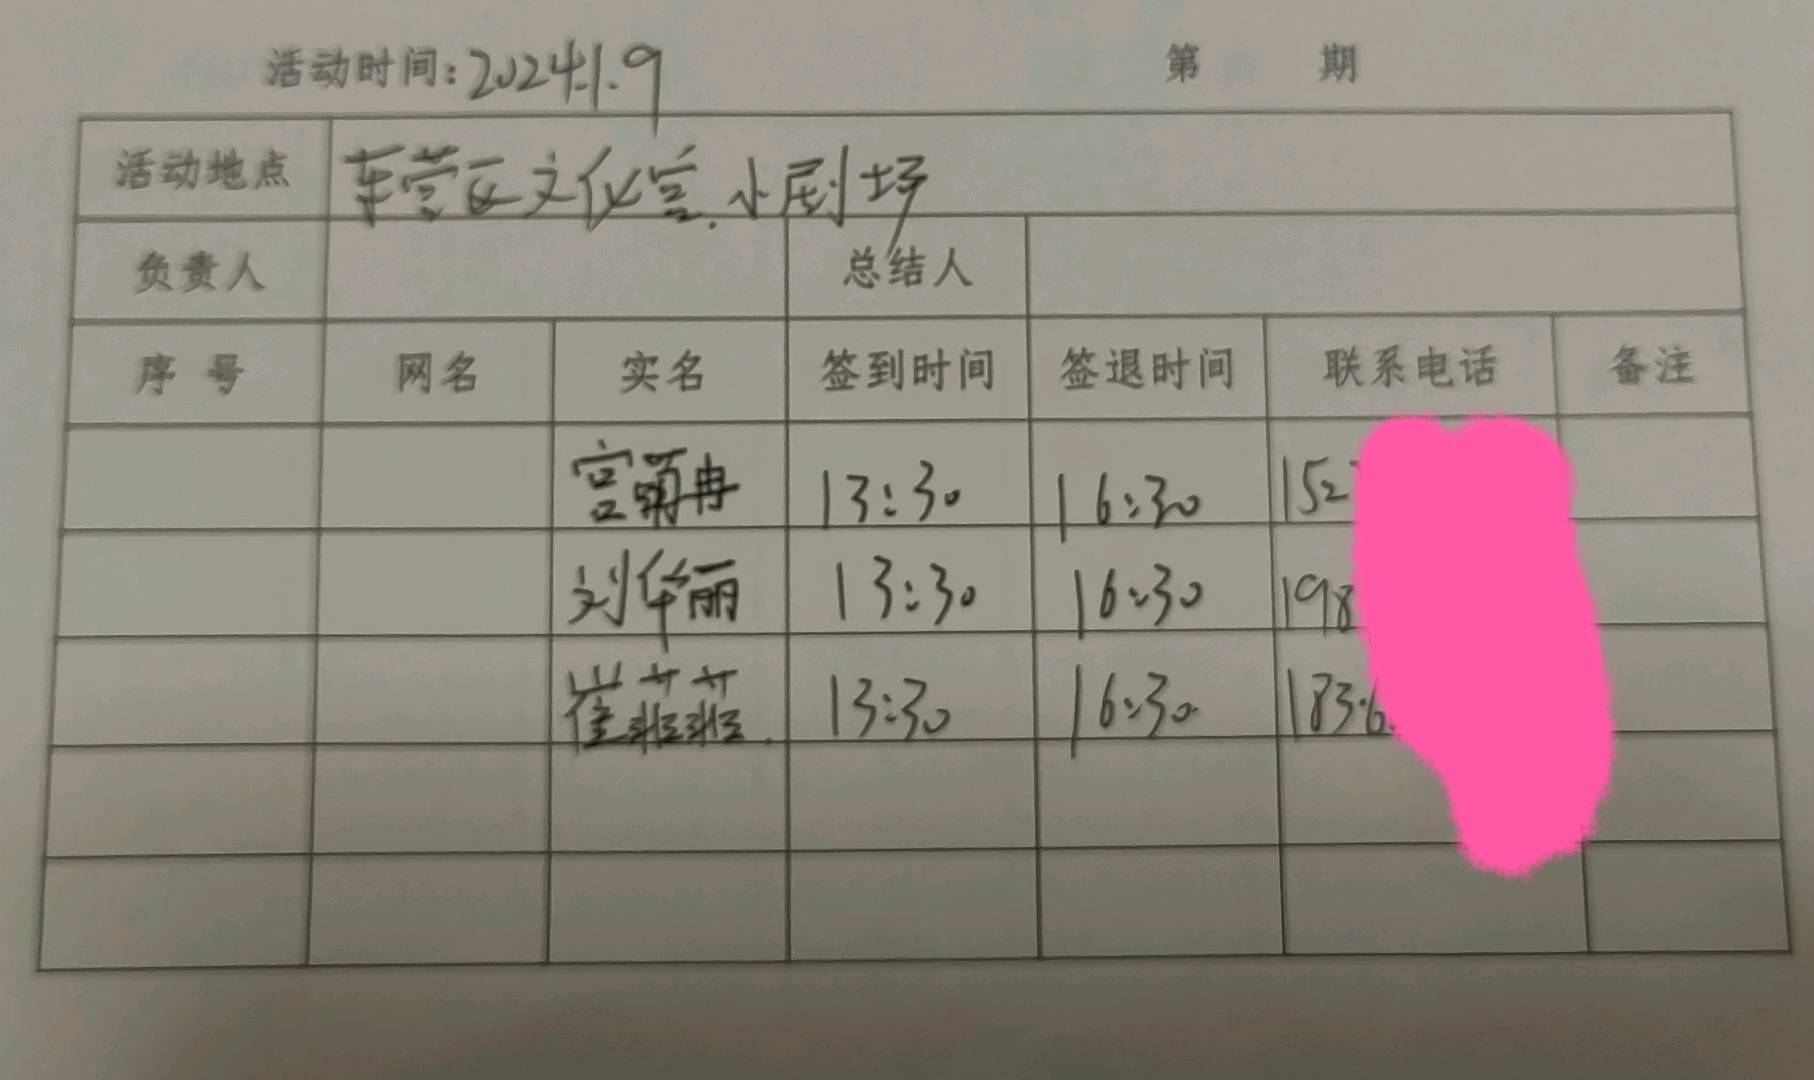 活动时间:2024.1.9 第 期
活动地点 东营区文化宫.小剧场
负责人 总结人
序号 网名 实名 签到时间 签退时间 联系电话 备注
宫萌冉 13:30 16:30 152
刘华丽 13:30 16:30 198
崔菲菲 13:30 16:30 183.6